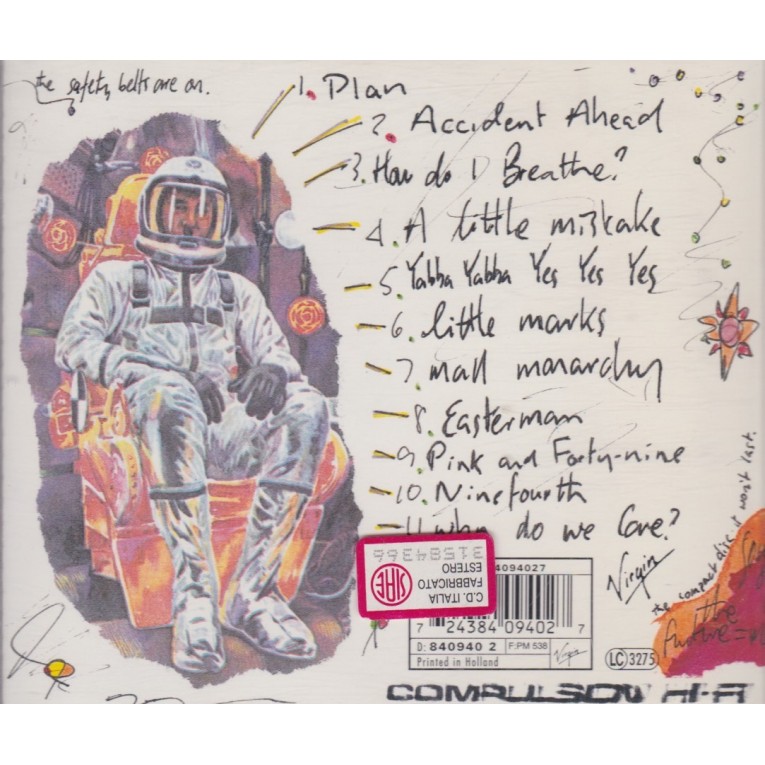 the safety belts are on.
1. Plan
2. Accident Ahead
3. How do I Breathe?
4. A little mistake
5. Yabba Yabba Yes Yes Yes
6. little marks
7. mall monarchy
8. Easterman
9. Pink and Forty-nine
10. Ninefourth
11. why do we care?
31584366
C.D. ITALIA
FABBRICATO
ESTERO
SIAE
4094027
7 24384 09402 7
D: 840940 2 F:PM 538 Virgin
Printed in Holland
Virgin
LC 3275
the compact disc it won't last.
the
future =
COMPULSION HI-FI